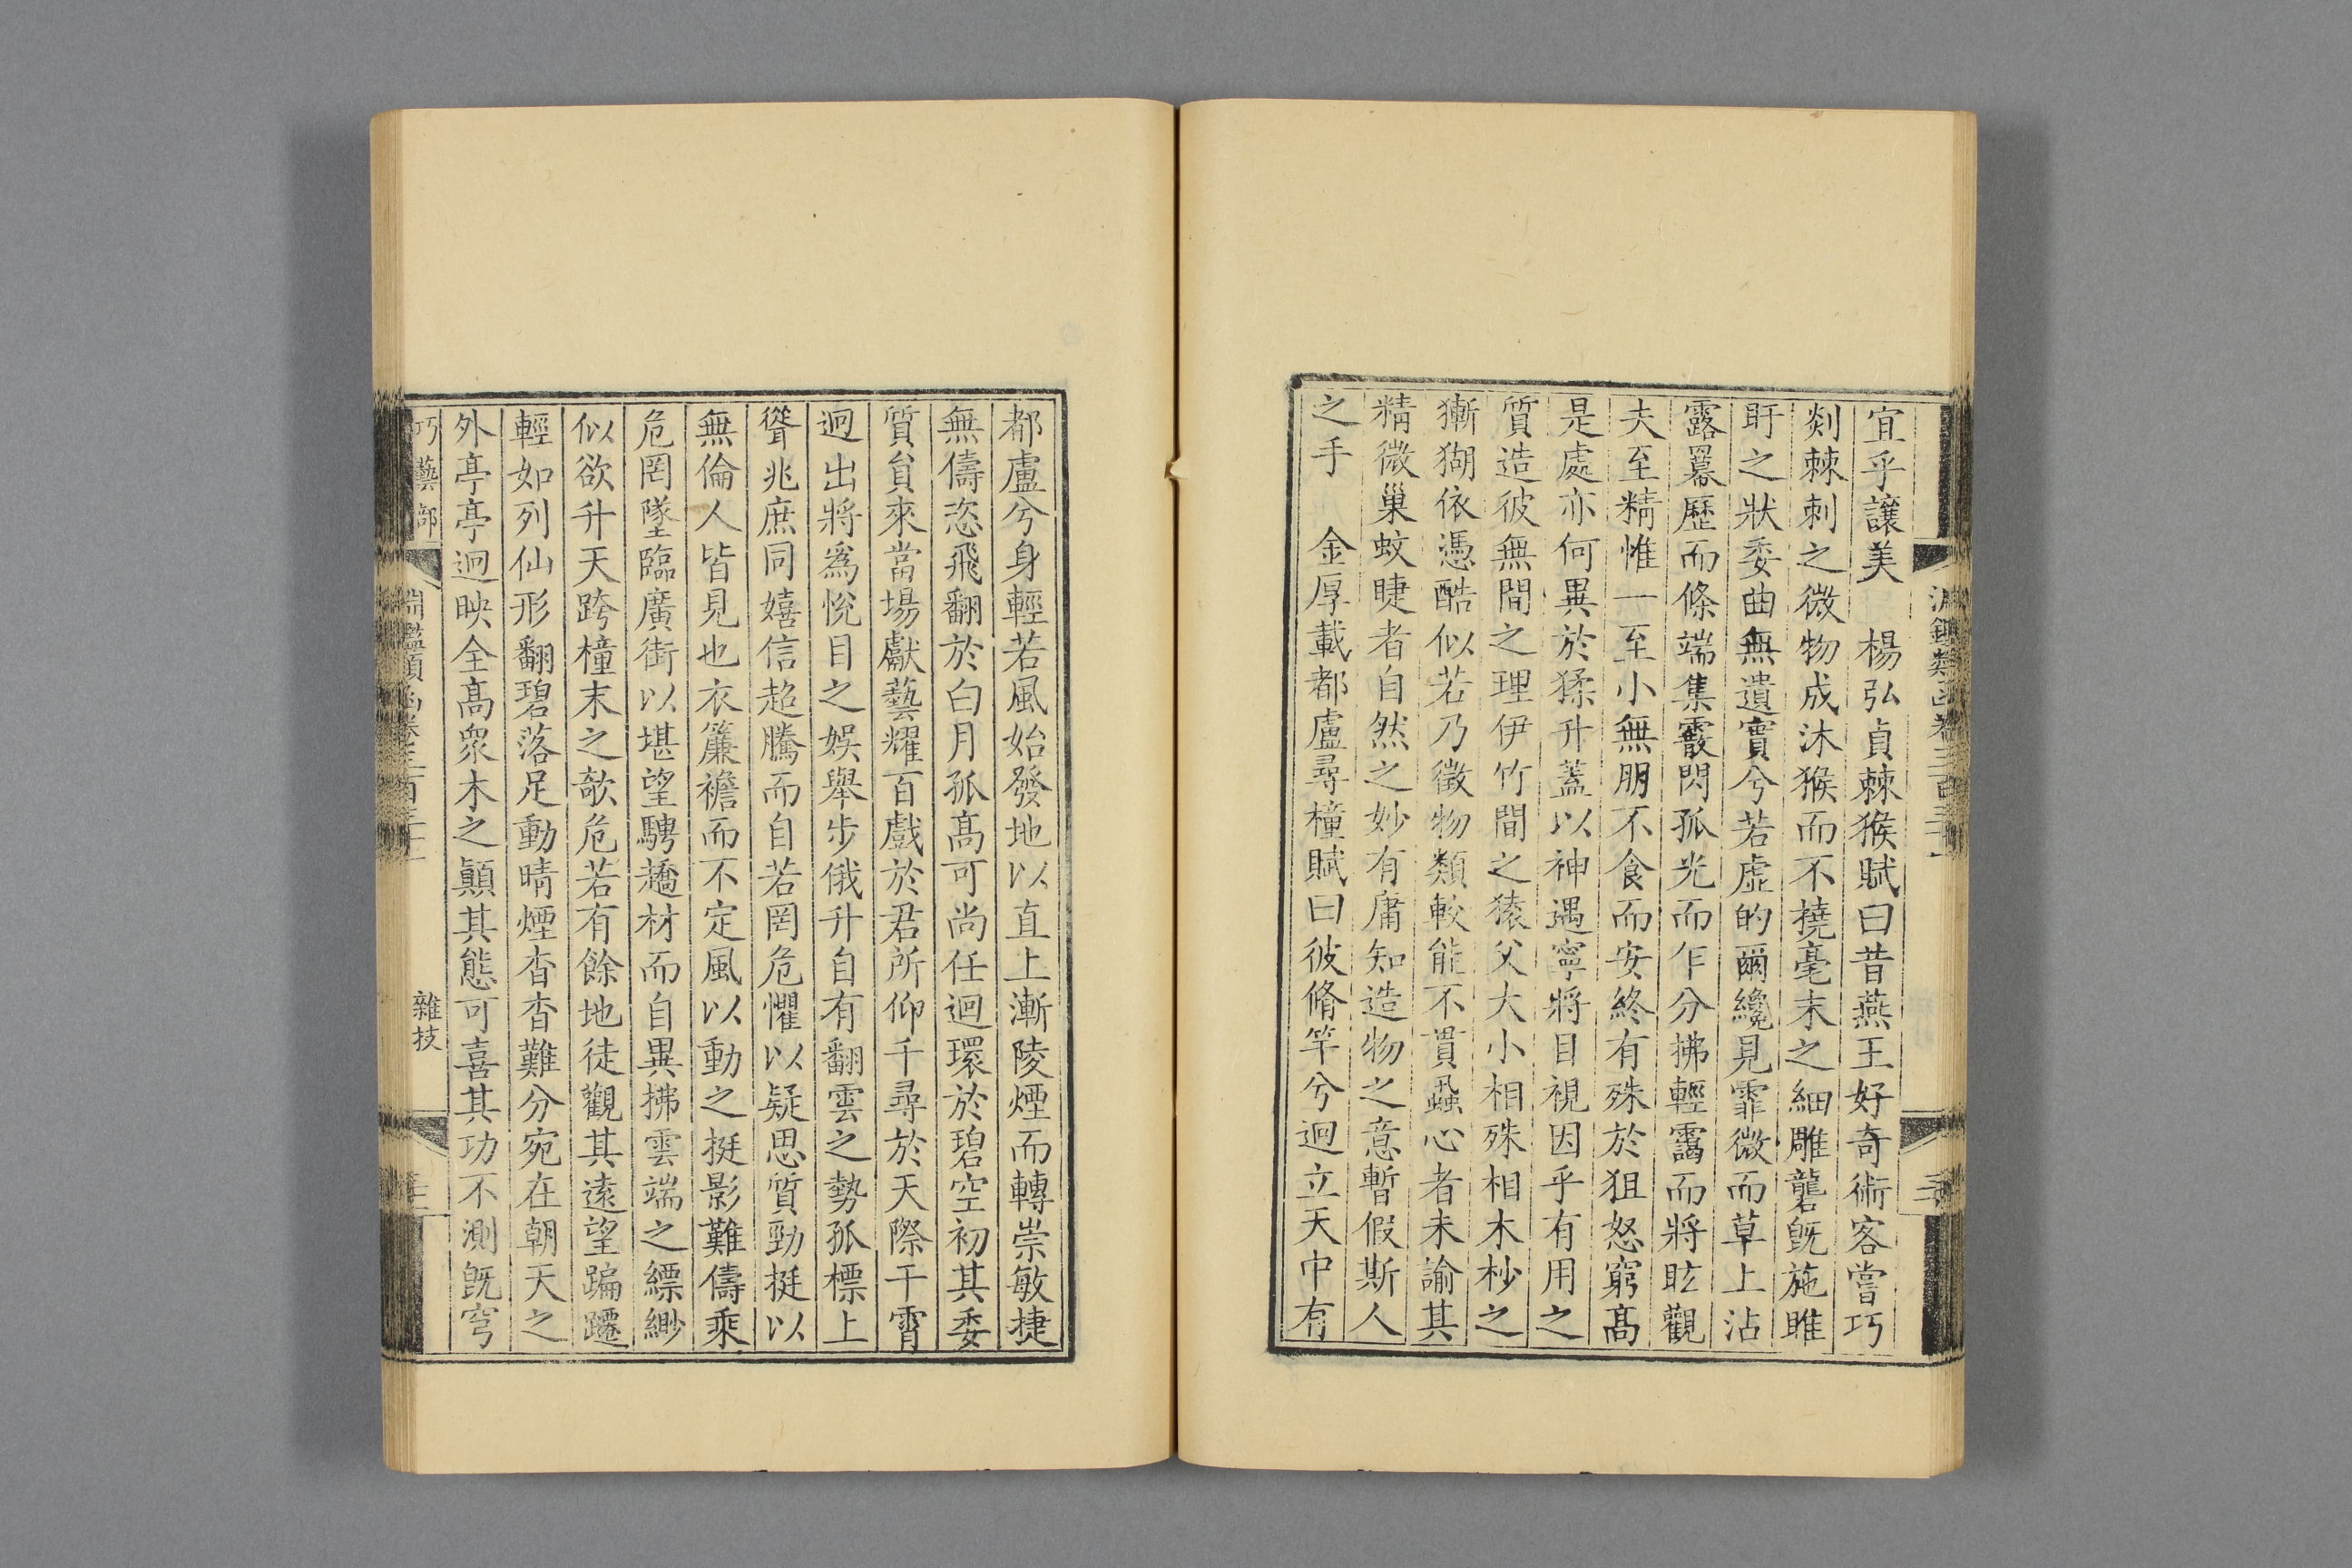 宜乎讓美　楊弘貞棘猴賦曰昔燕王好奇術客嘗巧
剡棘刺之微物成沐猴而不撓毫末之細雕礱旣施睢
盱之狀委曲無遺實兮若虛的爾纔見霏微而草上沾
露羃歷而條端集霰閃孤光而乍分拂輕靄而將眩觀
夫至精惟一至小無朋不食而安終有殊於狙怒窮髙
是處亦何異於猱升蓋以神遇寧將目視因乎有用之
質造彼無間之理伊竹間之猿父大小相殊相木杪之
獑猢依憑酷似若乃徵物類較能不貫蝨心者未諭其
精微巢蚊睫者自然之妙有庸知造物之意暫假斯人
之手　金厚載都盧尋橦賦曰彼脩竿兮迥立天中有
都盧兮身輕若風始發地以直上漸陵煙而轉崇敏捷
無儔恣飛翻於白月孤髙可尚任迴環於碧空初其委
質貟來當場獻藝耀百戲於君所仰千尋於天際干霄
迥出將爲悅目之娛舉步俄升自有翻雲之勢孤標上
聳兆庶同嬉信超騰而自若罔危懼以疑思質勁挺以
無倫人皆見也衣簾襜而不定風以動之挺影難儔乘
危罔墜臨廣街以堪望騁趫材而自異拂雲端之縹緲
似欲升天跨橦末之欹危若有餘地徒觀其遠望蹁躚
輕如列仙形翻碧落足動晴煙杳杳難分宛在朝天之
外亭亭迥映全髙衆木之顚其態可喜其功不測旣穹
巧藝部
雜技